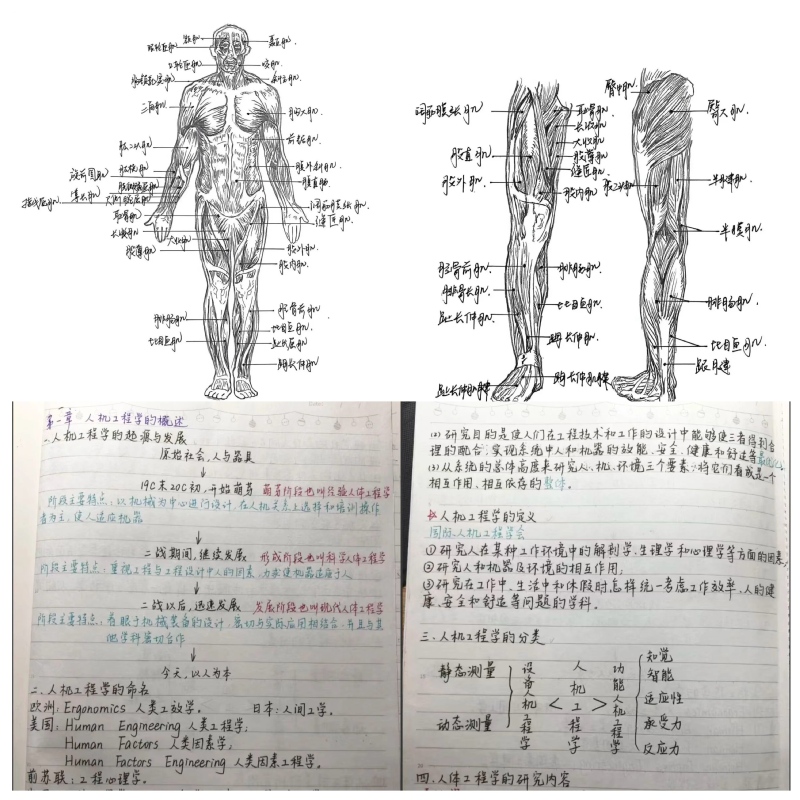 额肌
眼轮匝肌
口轮匝肌
三角肌
旋前圆肌
掌长肌
耻骨肌
长收肌
大收肌
股薄肌
腓肠肌
比目鱼肌
咬肌
胸大肌
前锯肌
腹外斜肌
腹直肌
阔筋膜张肌
缝匠肌
股外肌
股内肌
胫骨前肌
比目鱼肌
趾长屈肌
拇长伸肌
阔筋膜张肌
股直肌
股外肌
胫骨前肌
腓骨长肌
趾长伸肌
趾长伸肌腱
耻骨肌
长收肌
大收肌
股薄肌
缝匠肌
股内肌
腓肠肌
比目鱼肌
拇长伸肌
拇长伸肌腱
臀中肌
股二头肌
臀大肌
半腱肌
半膜肌
腓肠肌
比目鱼肌
跟腱
第一章 人机工程学的概述
一、人机工程学的起源与发展
原始社会,人与器具
19C末20C初,开始萌芽 萌芽阶段也叫经验人体工程学
阶段主要特点:以机械为中心进行设计,在人机关系上选择和培训操作
者为主,使人适应机器
二战期间,继续发展 形成阶段也叫科学人体工程学
阶段主要特点:重视工程与工程设计中人的因素,力求使机器适应于人
二战以后,迅速发展 发展阶段也叫现代人体工程学
阶段主要特点:着眼于机械装备的设计,密切与实际应用相结合,并且与其
他学科密切合作
今天,以人为本
二、人机工程学的命名
欧洲:Ergonomics 人类工效学。 日本:人间工学。
美国:Human Engineering 人类工程学;
Human Factors 人类因素学;
Human Factors Engineering 人类因素工程学。
前苏联:工程心理学。
(2)研究目的是使人们在工程技术和工作的设计中能够使三者得到合
理的配合,实现系统中人和机器的效能、安全、健康和舒适等最优化。
(3)从系统的总体高度来研究人、机、环境三个要素,将它们看成是一个
相互作用、相互依存的整体。
人机工程学的定义
国际人机工程学会
①研究人在某种工作环境中的解剖学、生理学和心理学等方面的因素;
②研究人和机器及环境的相互作用;
③研究在工作中、生活中和休假时怎样统一考虑工作效率、人的健
康、安全和舒适等问题的学科。
三、人机工程学的分类
静态测量
动态测量
设备人机工程学
人机工程学
功能人机工程学
知觉
智能
适应性
承受力
反应力
四、人体工程学的研究内容